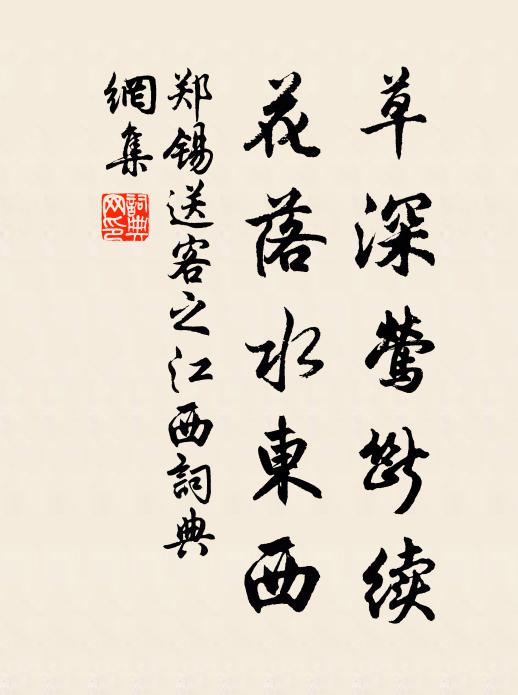 草深莺断续
花落水東西
郑锡送客之江西詞典
網集
詞典网印